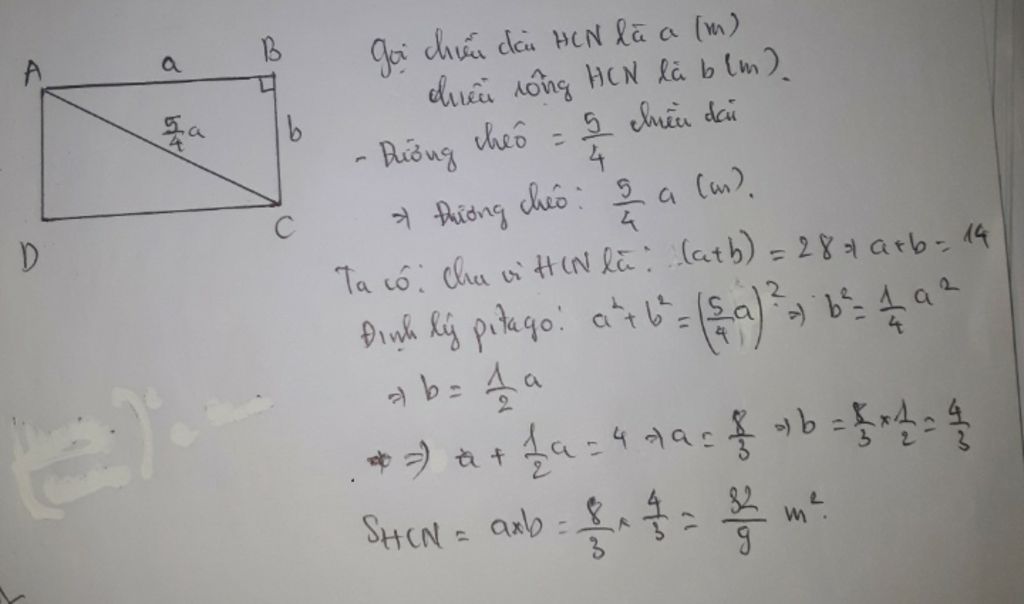 A a B
5/4 a
b
D C
Gọi chiều dài HCN là a (m)
chiều rộng HCN là b (m).
- Đường chéo = 5/4 chiều dài
⇒ Đường chéo: 5/4 a (m).
Ta có: Chu vi HCN là: (a+b) = 28 ⇒ a+b = 14
Định lý pitago: a² + b² = (5/4 a)² ⇒ b² = 1/4 a²
⇒ b = 1/2 a
⇒ a + 1/2 a = 4 ⇒ a = 8/3 ⇒ b = 8/3 × 1/2 = 4/3
SHCN = a×b = 8/3 × 4/3 = 32/9 m².